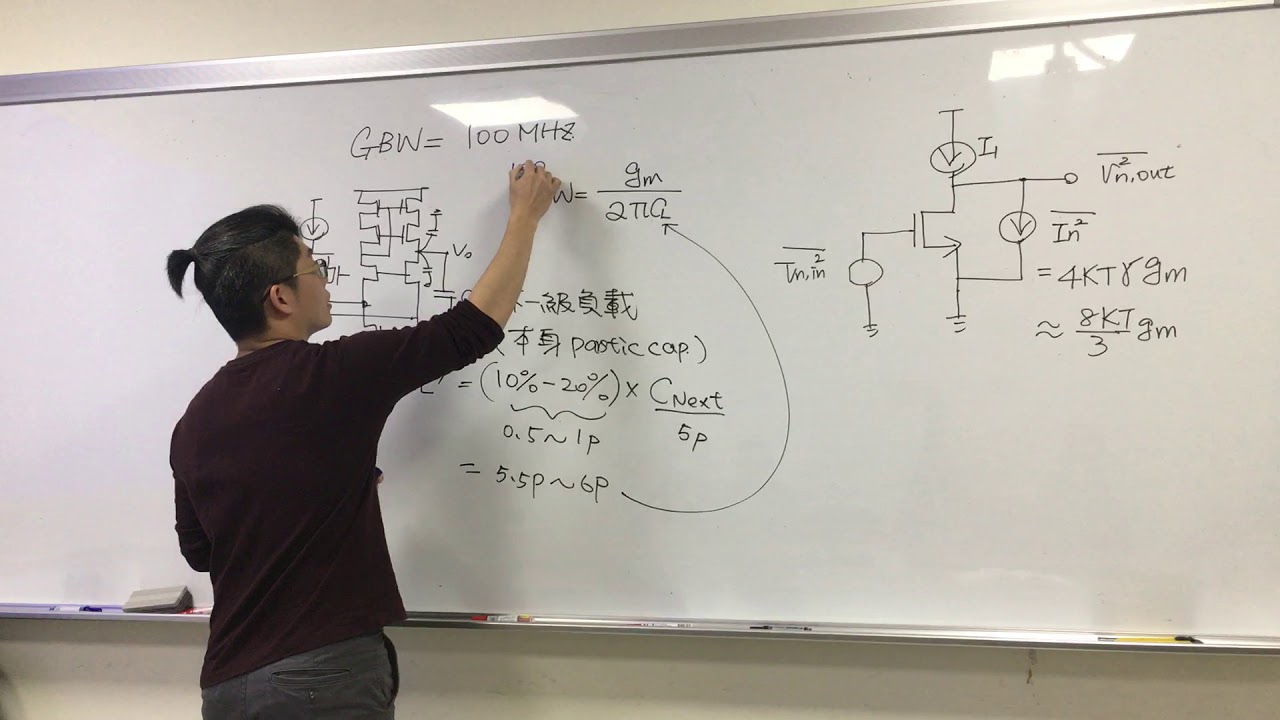 GBW = 100 MHz
W = gm / 2πCL
Vo
一級負載
本身 parstic cap.)
= (10% - 20%) × CNext / 5p
0.5 ~ 1p
= 5.5p ~ 6p
I1
Vn,out²
Vn,in²
In²
= 4KTγgm
≈ 8KT/3 gm